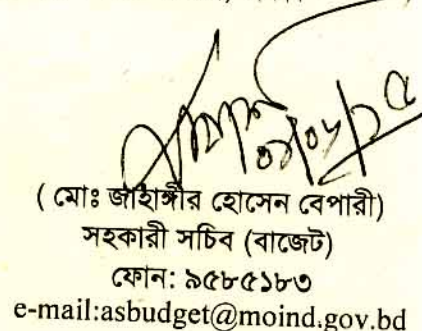 ( মোঃ জাহাঙ্গীর হোসেন বেপারী)
সহকারী সচিব (বাজেট)
ফোন: ৯৫৮৫১৮৩
e-mail:asbudget@moind.gov.bd